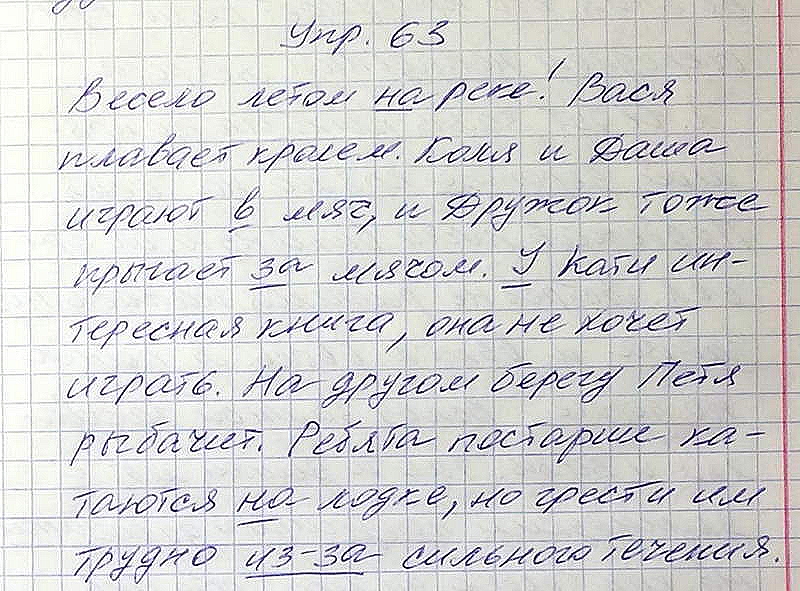 Упр. 63
Весело летом на реке! Вася
плавает кролем. Коля и Даша
играют в мяч, и Дружок тоже
прыгает за мячом. У Кати ин-
тересная книга, она не хочет
играть. На другом берегу Петя
рыбачит. Ребята постарше ка-
таются на лодке, но грести им
трудно из-за сильного течения.